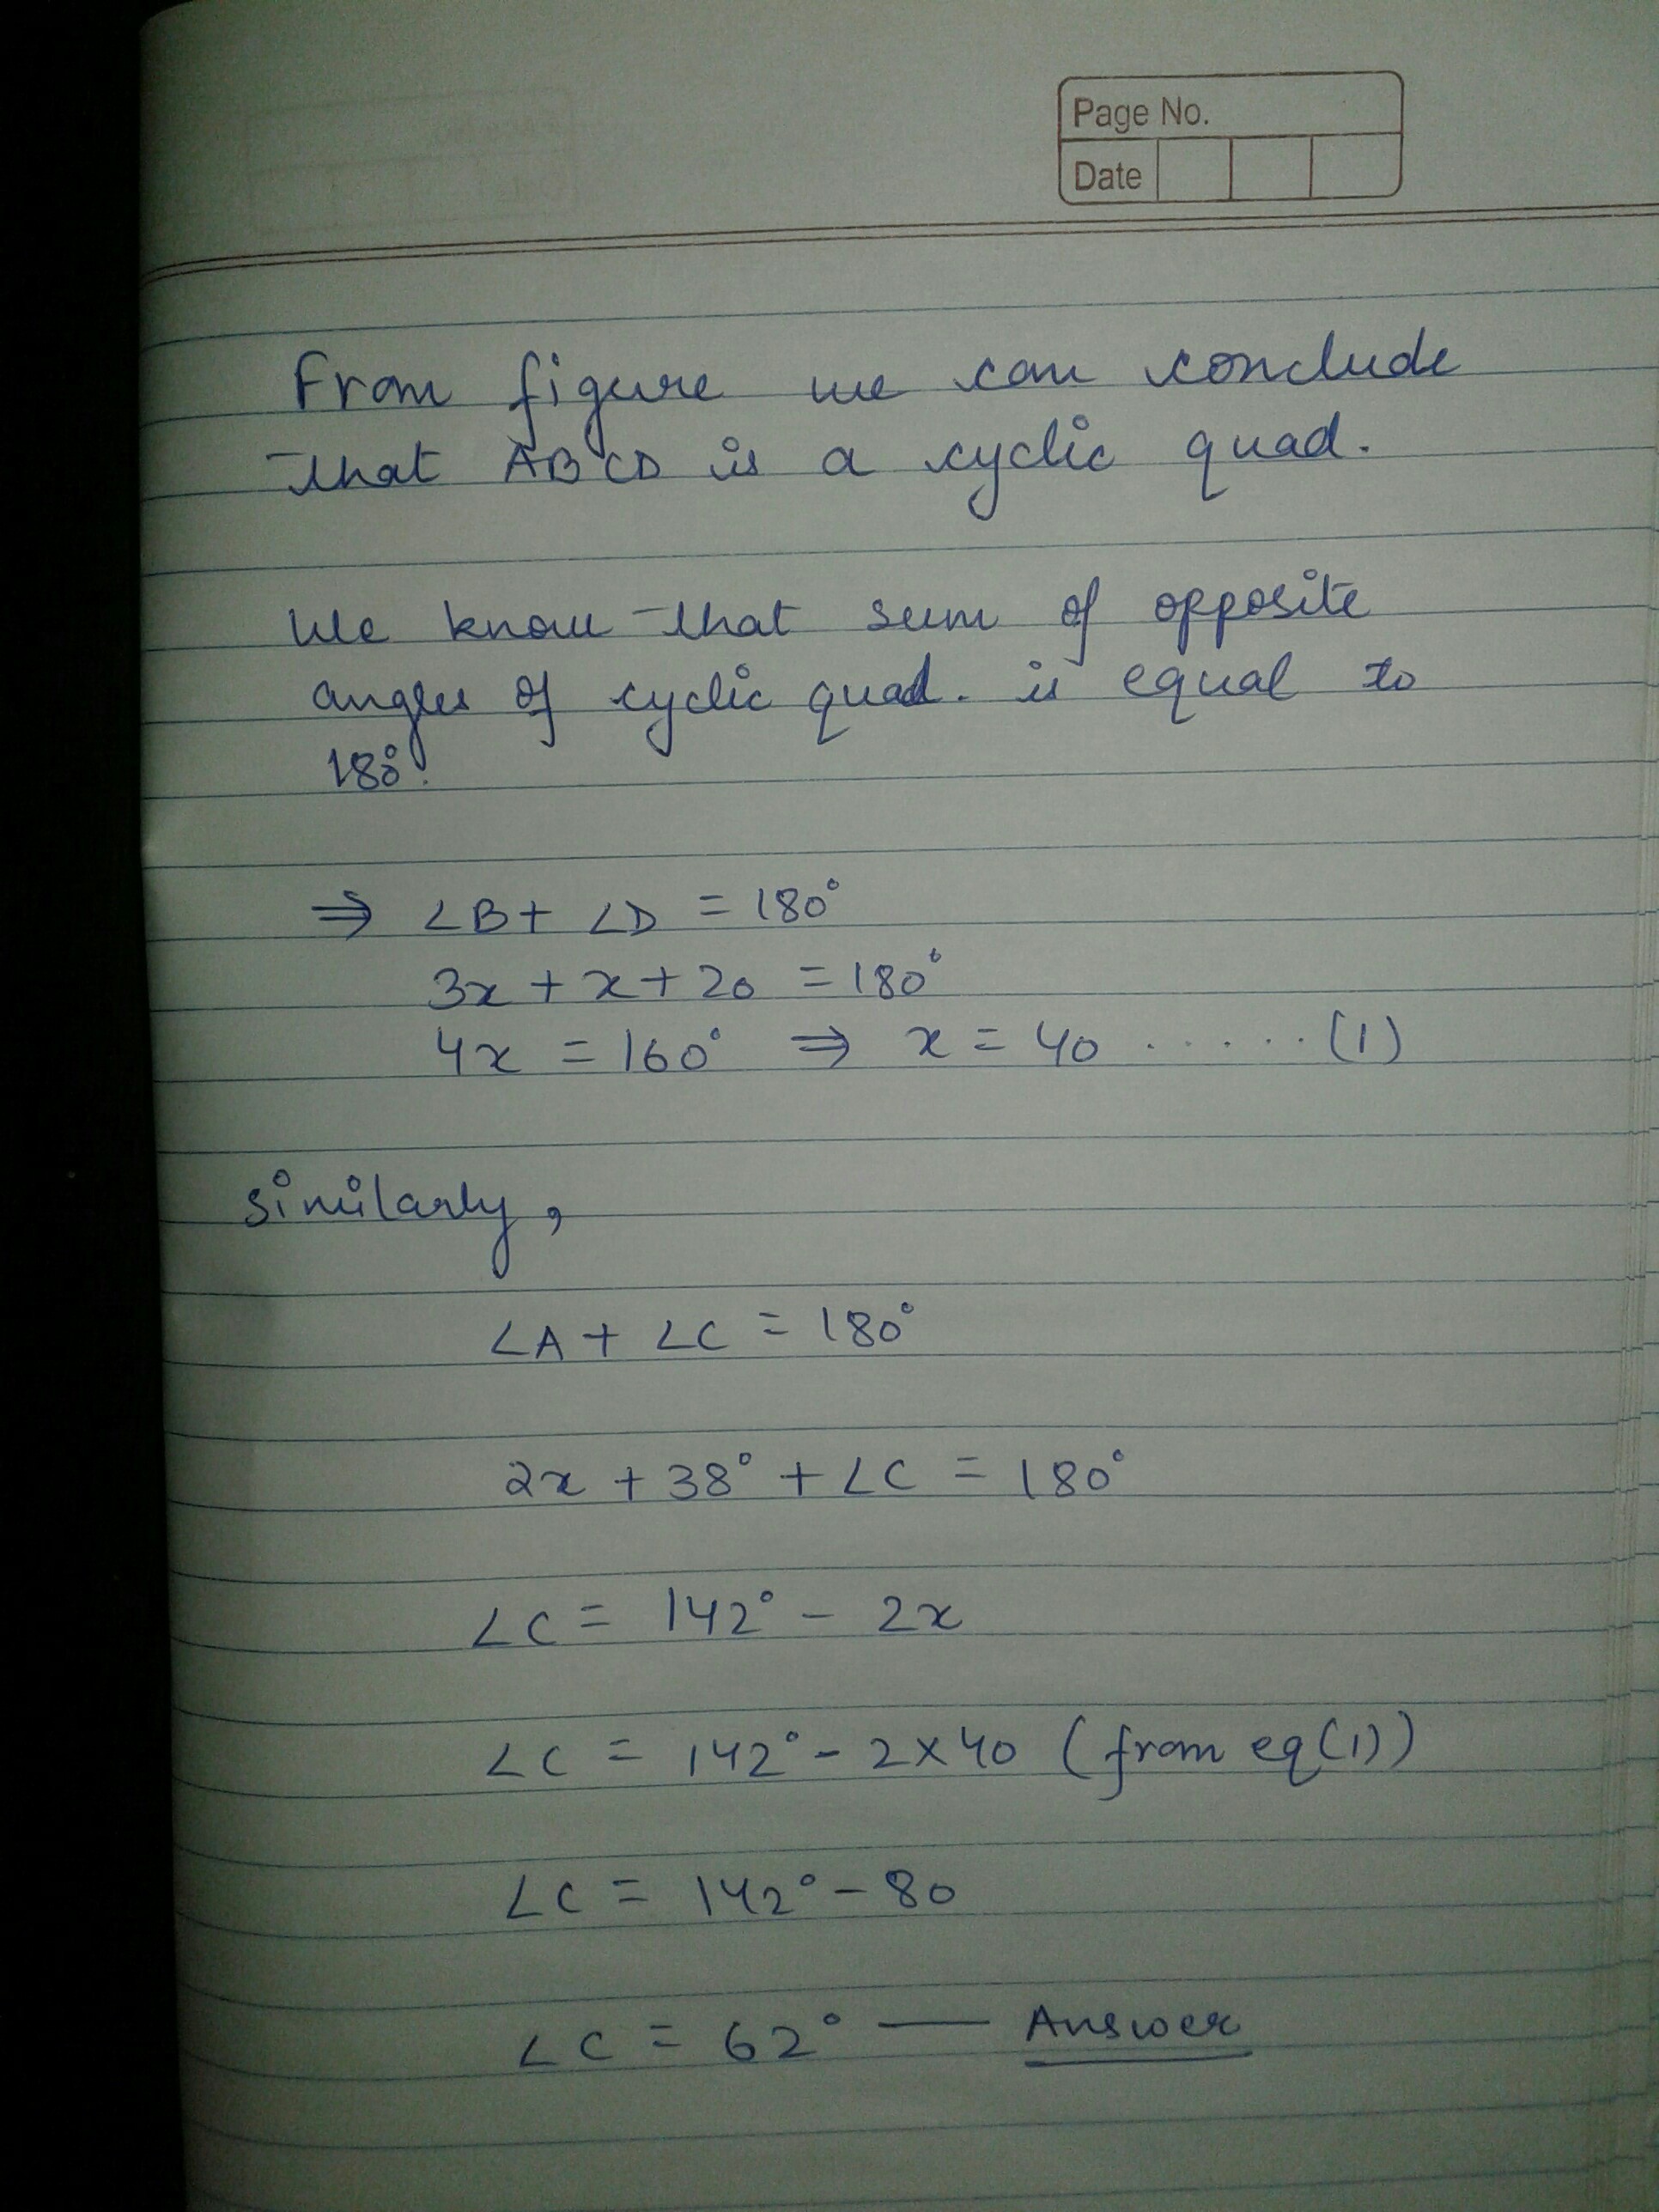 Page No.
Date
From figure we can conclude
that ABCD is a cyclic quad.
We know that sum of opposite
angles of cyclic quad. is equal to
180°.
⇒ ∠B + ∠D = 180°
3x + x + 20 = 180°
4x = 160° ⇒ x = 40 ......(1)
similarly,
∠A + ∠C = 180°
2x + 38° + ∠C = 180°
∠C = 142° - 2x
∠C = 142° - 2×40 (from eq(1))
∠C = 142° - 80
∠C = 62° — Answer